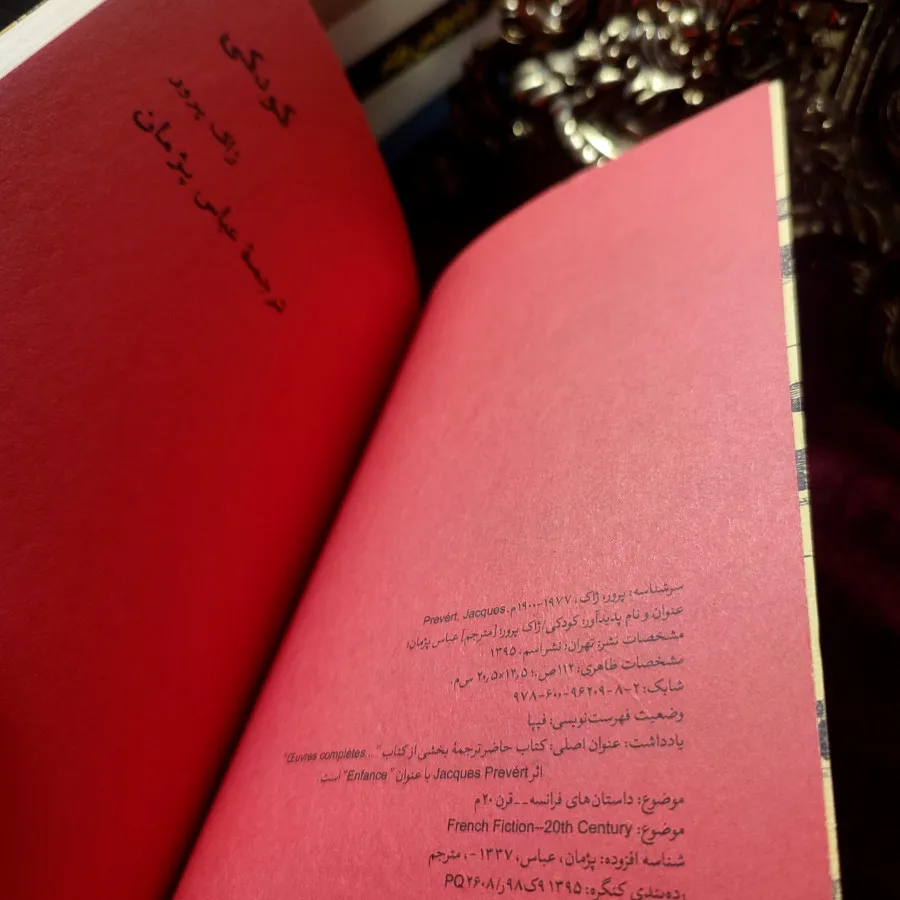 کودکی
ژاک پرور
ترجمهٔ عباس پژمان
سرشناسه: پرور، ژاک، ۱۹۷۷-۱۹۰۰م. Prevért, Jacques
عنوان و نام پدیدآور: کودکی/ژاک پرور؛ [مترجم] عباس پژمان؛
مشخصات نشر: تهران: نشراسم، ۱۳۹۵
مشخصات ظاهری: ۱۱۲ص.؛ ۱۲٫۵×۲۰٫۵ س‌م.
شابک: ۲-۸-۹۶۲۰۹-۶۰۰-۹۷۸
وضعیت فهرست‌نویسی: فیپا
یادداشت: عنوان اصلی: کتاب حاضر ترجمهٔ بخشی از کتاب "...Œuvres complètes"
اثر Jacques Prevért با عنوان "Enfance" است
موضوع: داستان‌های فرانسه--قرن ۲۰م
موضوع: French Fiction--20th Century
شناسه افزوده: پژمان، عباس، ۱۳۳۷-، مترجم
رده‌بندی کنگره: ۱۳۹۵ ۹ک۹۸ر/PQ۲۶۰۸